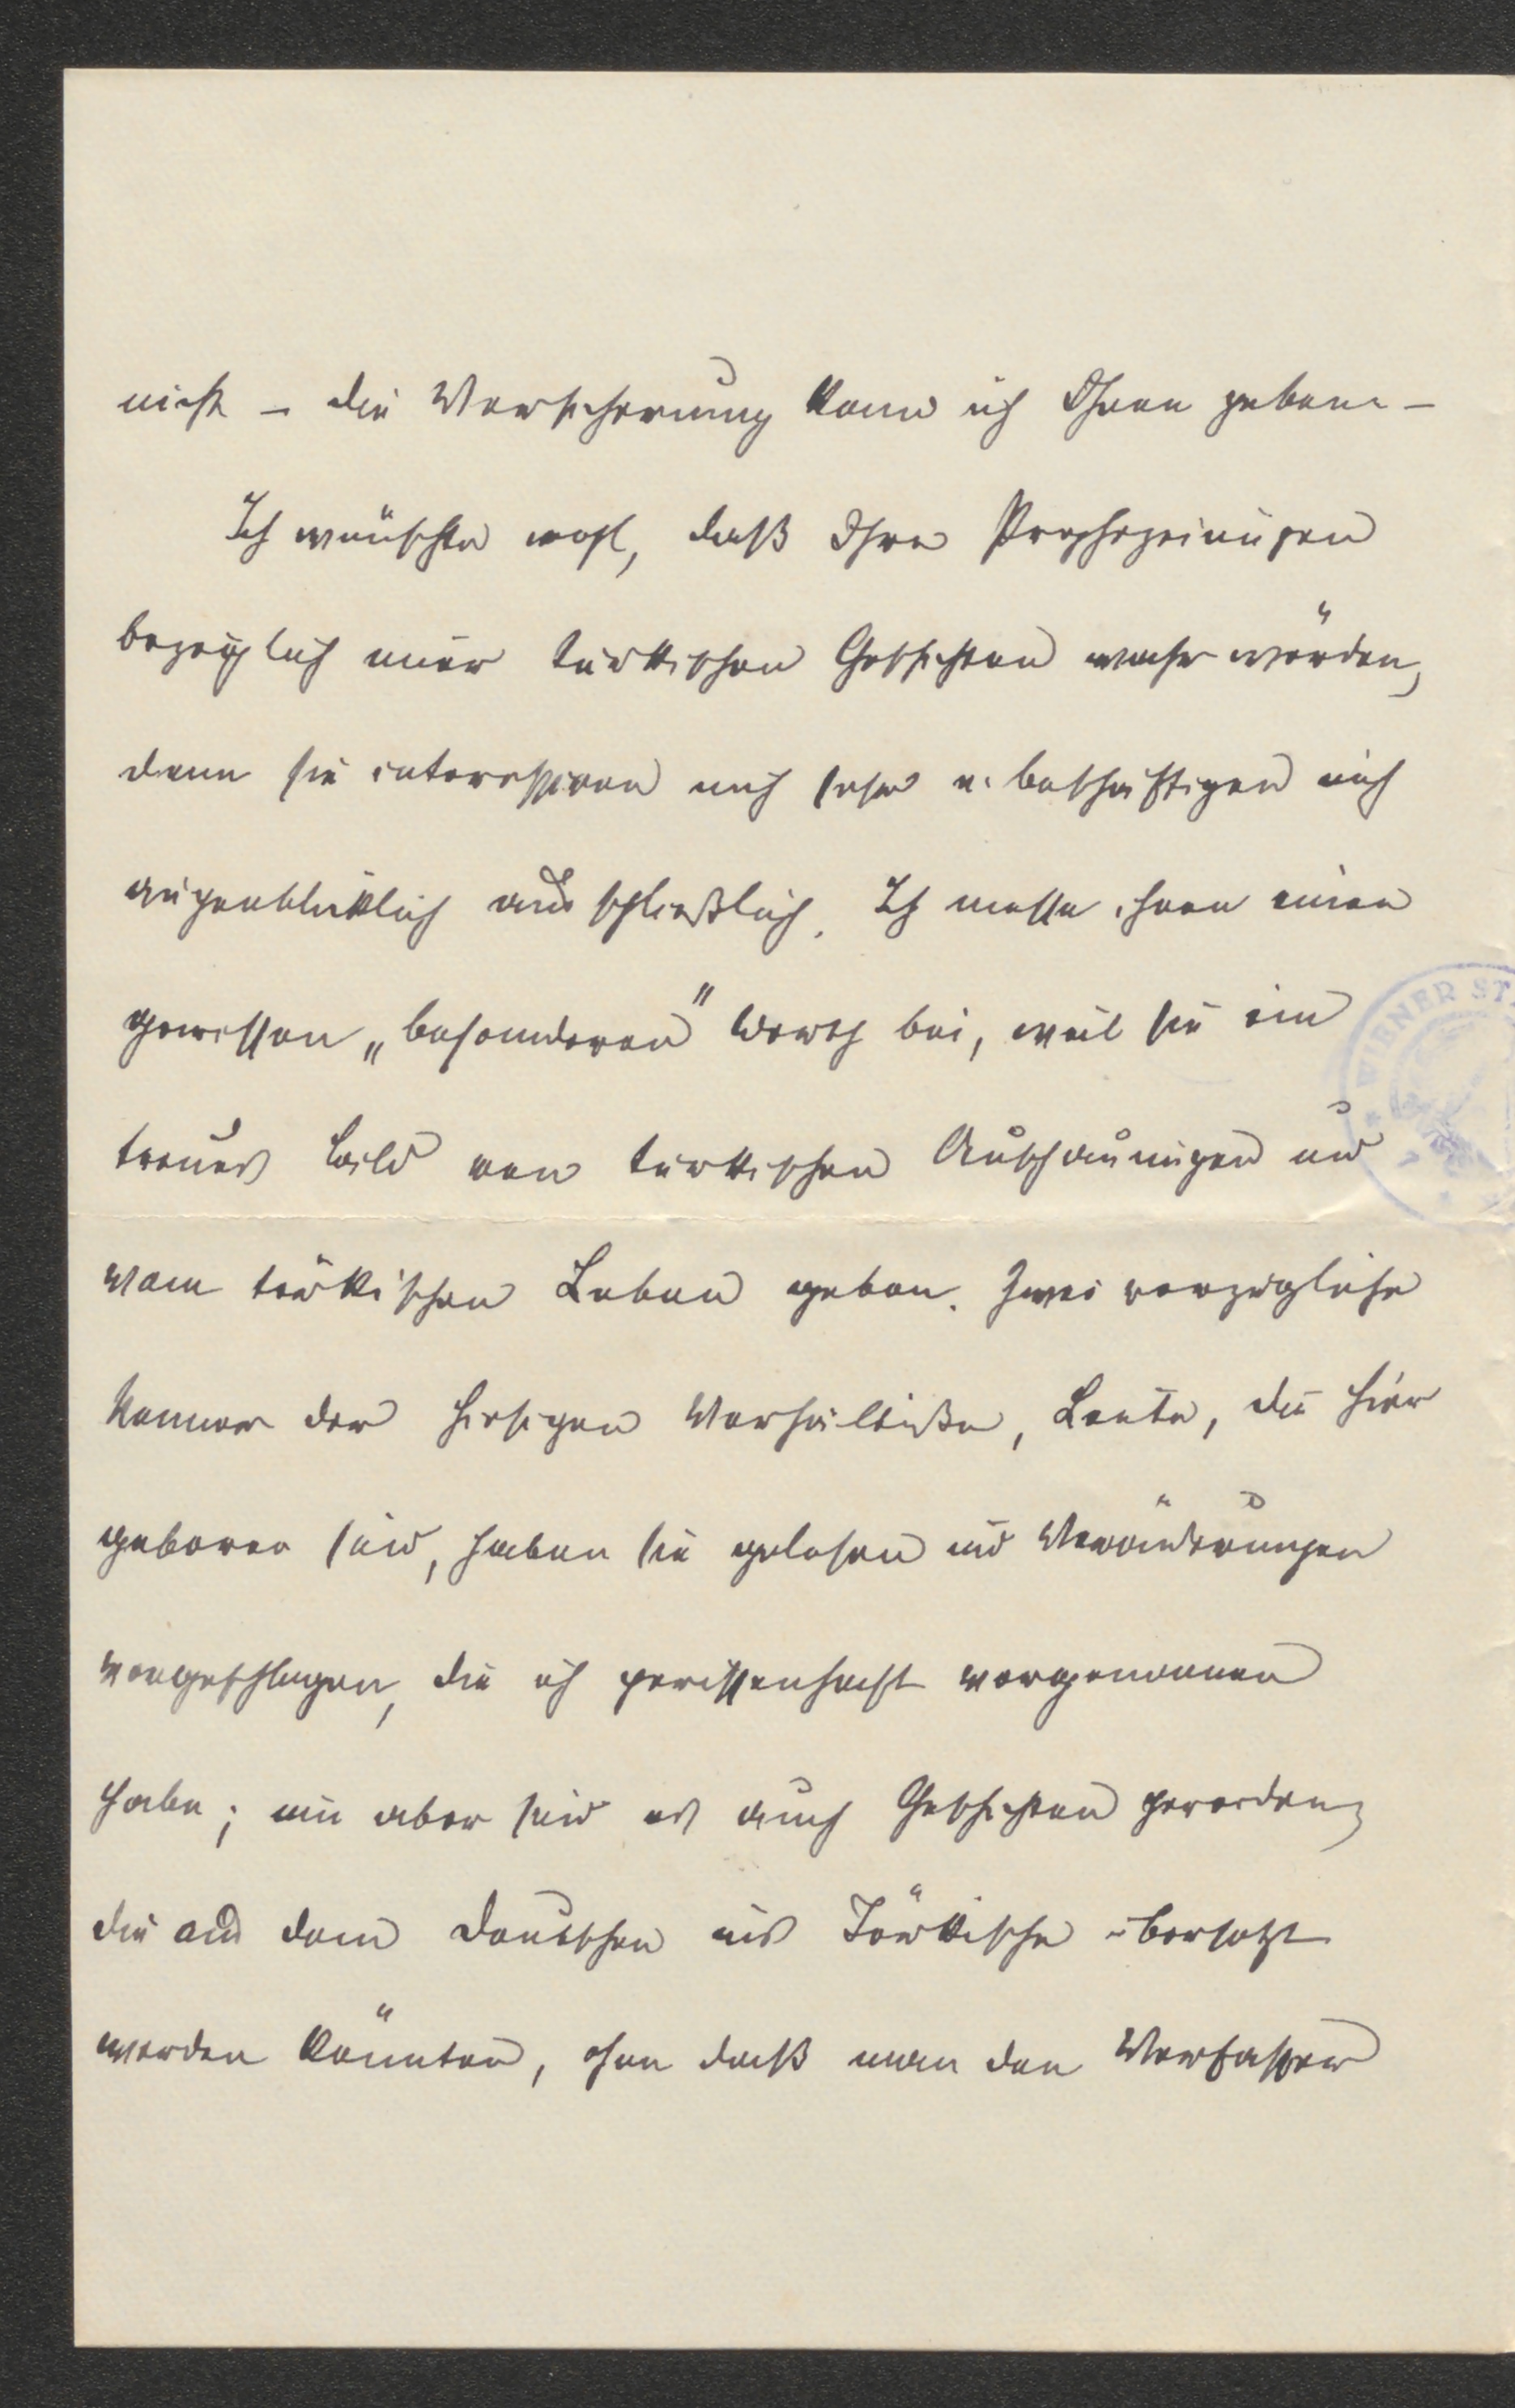 nicht – die Versicherung kann ich Ihnen geben. –
Ich wünschte wohl, daß Ihre Prophezeiungen
bezüglich meiner türkischen Geschichten wahr würden,
denn sie interessiren mich sehr u. beschäftigen mich
augenblicklich ausschließlich. Ich messe ihnen einen
gewissen „besonderen" Werth bei, weil sie ein
treues Bild von türkischen Anschauungen und
vom türkischen Leben geben. Zwei vorzügliche
Kenner der hiesigen Verhältniße, Leute, die hier
geboren sind, haben sie gelesen und Veränderungen
vorgeschlagen, die ich gewissenhaft vorgenommen
habe; nun aber sind es auch Geschichten geworden,
die aus dem Deutschen ins Türkische übersetzt
werden könnten, ohne daß man den Verfasser
WIENER ST